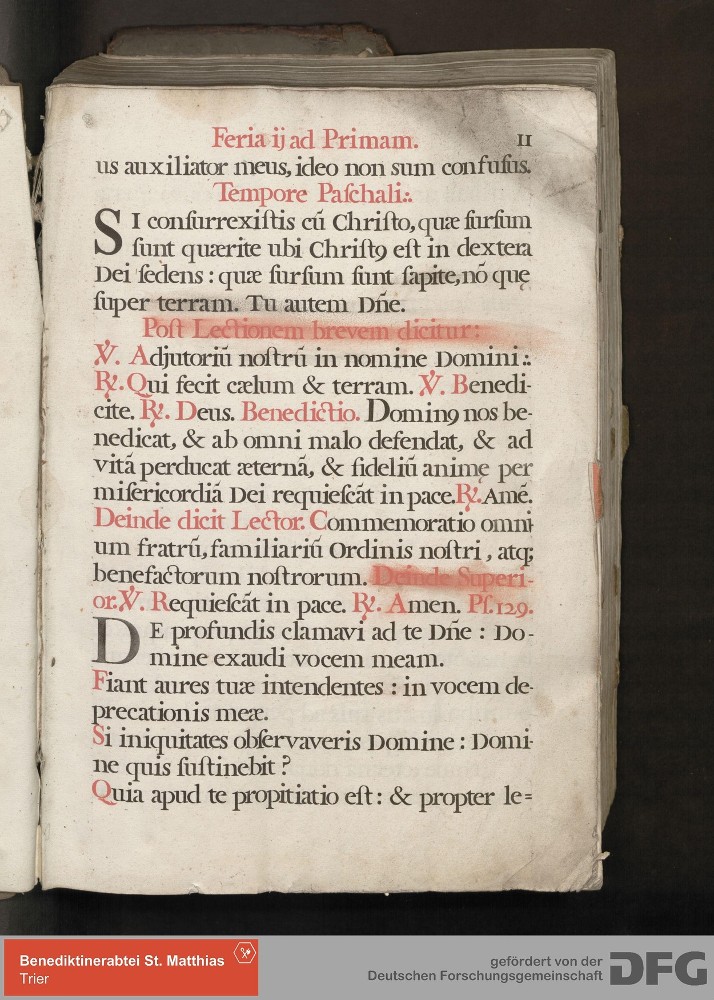 Feria ij ad Primam. 11
us auxiliator meus, ideo non sum confuſus.
Tempore Paſchali:.
SI conſurrexiſtis cũ Chriſto, quæ ſurſum
ſunt quærite ubi Chriſtꝰ eſt in dextera
Dei ſedens : quæ ſurſum ſunt ſapite, nõ quę
ſuper terram. Tu autem Dñe.
Poſt Lectionem brevem dicitur:
℣. Adjutoriũ noſtrũ in nomine Domini :.
℟. Qui fecit cælum & terram. ℣. Benedi-
cite. ℟. Deus. Benedictio. Dominꝰ nos be-
nedicat, & ab omni malo defendat, & ad
vitã perducat æternã, & fideliũ animę per
miſericordiã Dei requieſcãt in pace. ℟. Amẽ.
Deinde dicit Lector. Commemoratio omni
um fratrũ, familiariũ Ordinis noſtri, atq;
benefactorum noſtrorum. Deinde Superi-
or. ℣. Requieſcãt in pace. ℟. Amen. Pſ. 129.
DE profundis clamavi ad te Dñe : Do-
mine exaudi vocem meam.
Fiant aures tuæ intendentes : in vocem de-
precationis meæ.
Si iniquitates obſervaveris Domine : Domi-
ne quis ſuſtinebit ?
Quia apud te propitiatio eſt : & propter le=
Benediktinerabtei St. Matthias
Trier
gefördert von der
Deutschen Forschungsgemeinschaft DFG